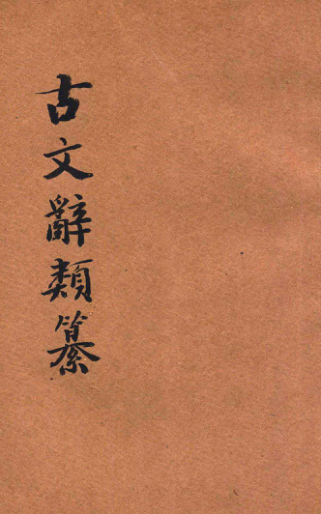 古文辭類纂